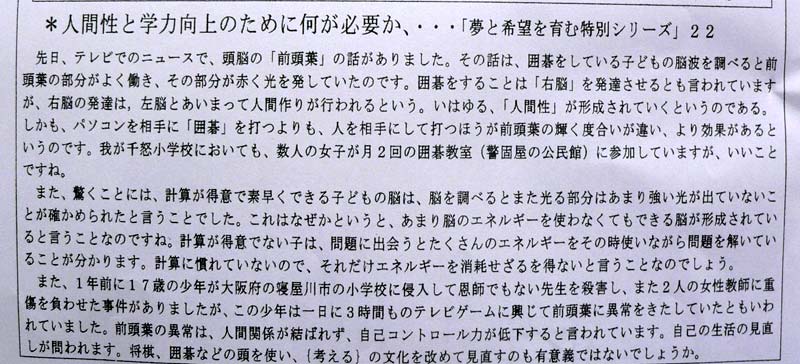 ＊人間性と学力向上のために何が必要か、・・・「夢と希望を育む特別シリーズ」２２
先日、テレビでのニュースで、頭脳の「前頭葉」の話がありました。その話は、囲碁をしている子どもの脳波を調べると前
頭葉の部分がよく働き、その部分が赤く光を発していたのです。囲碁をすることは「右脳」を発達させるとも言われています
が、右脳の発達は，左脳とあいまって人間作りが行われるという。いはゆる、「人間性」が形成されていくというのである。
しかも、パソコンを相手に「囲碁」を打つよりも、人を相手にして打つほうが前頭葉の輝く度合いが違い、より効果があると
いうのです。我が千怒小学校においても、数人の女子が月２回の囲碁教室（警固屋の公民館）に参加していますが、いいこと
ですね。
また、驚くことには、計算が得意で素早くできる子どもの脳は、脳を調べるとまた光る部分はあまり強い光が出ていないこ
とが確かめられたと言うことでした。これはなぜかというと、あまり脳のエネルギーを使わなくてもできる脳が形成されてい
ると言うことなのですね。計算が得意でない子は、問題に出会うとたくさんのエネルギーをその時使いながら問題を解いてい
ることが分かります。計算に慣れていないので、それだけエネルギーを消耗せざるを得ないと言うことなのでしょう。
また、１年前に１７歳の少年が大阪府の寝屋川市の小学校に侵入して恩師でもない先生を殺害し、また２人の女性教師に重
傷を負わせた事件がありましたが、この少年は一日に３時間ものテレビゲームに興じて前頭葉に異常をきたしていたともいわ
れていました。前頭葉の異常は、人間関係が結ばれず、自己コントロール力が低下すると言われています。自己の生活の見直
しが問われます。将棋、囲碁などの頭を使い、{考える}の文化を改めて見直すのも有意義ではないでしょうか。